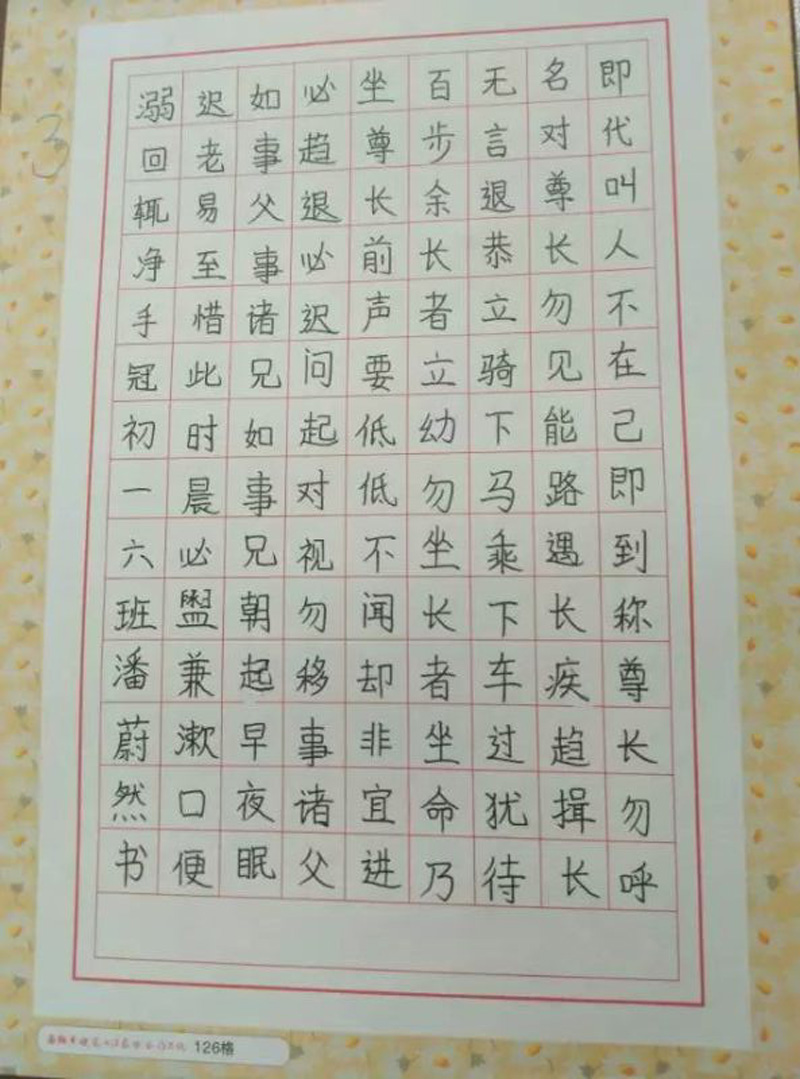 即代叫人不在己即到称尊长勿呼
名对尊长勿见能路遇长疾趋揖长
无言退恭立骑下马乘下车过犹待
百步余长者立幼勿坐长者坐命乃
坐尊长前声要低低不闻却非宜进
必趋退必迟问起对视勿移事诸父
如事父事诸兄如事兄朝起早夜眠
迟老易至惜此时晨必盥兼漱口便
溺回辄净手冠初一六班潘蔚然书
3
126格